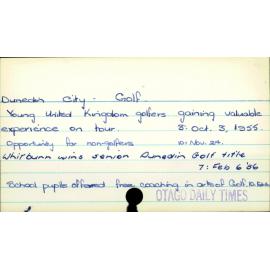 Dunedin City - Golf.
Young United Kingdom golfers gaining valuable
experience on tour. 8: Oct. 3, 1955.
Opportunity for non-golfers 10: Nov. 24.
Whitburn wins senior Dunedin Golf title
7: Feb 6 '86
School pupils offered free coaching in arts of Golf.
OTAGO DAILY TIMES